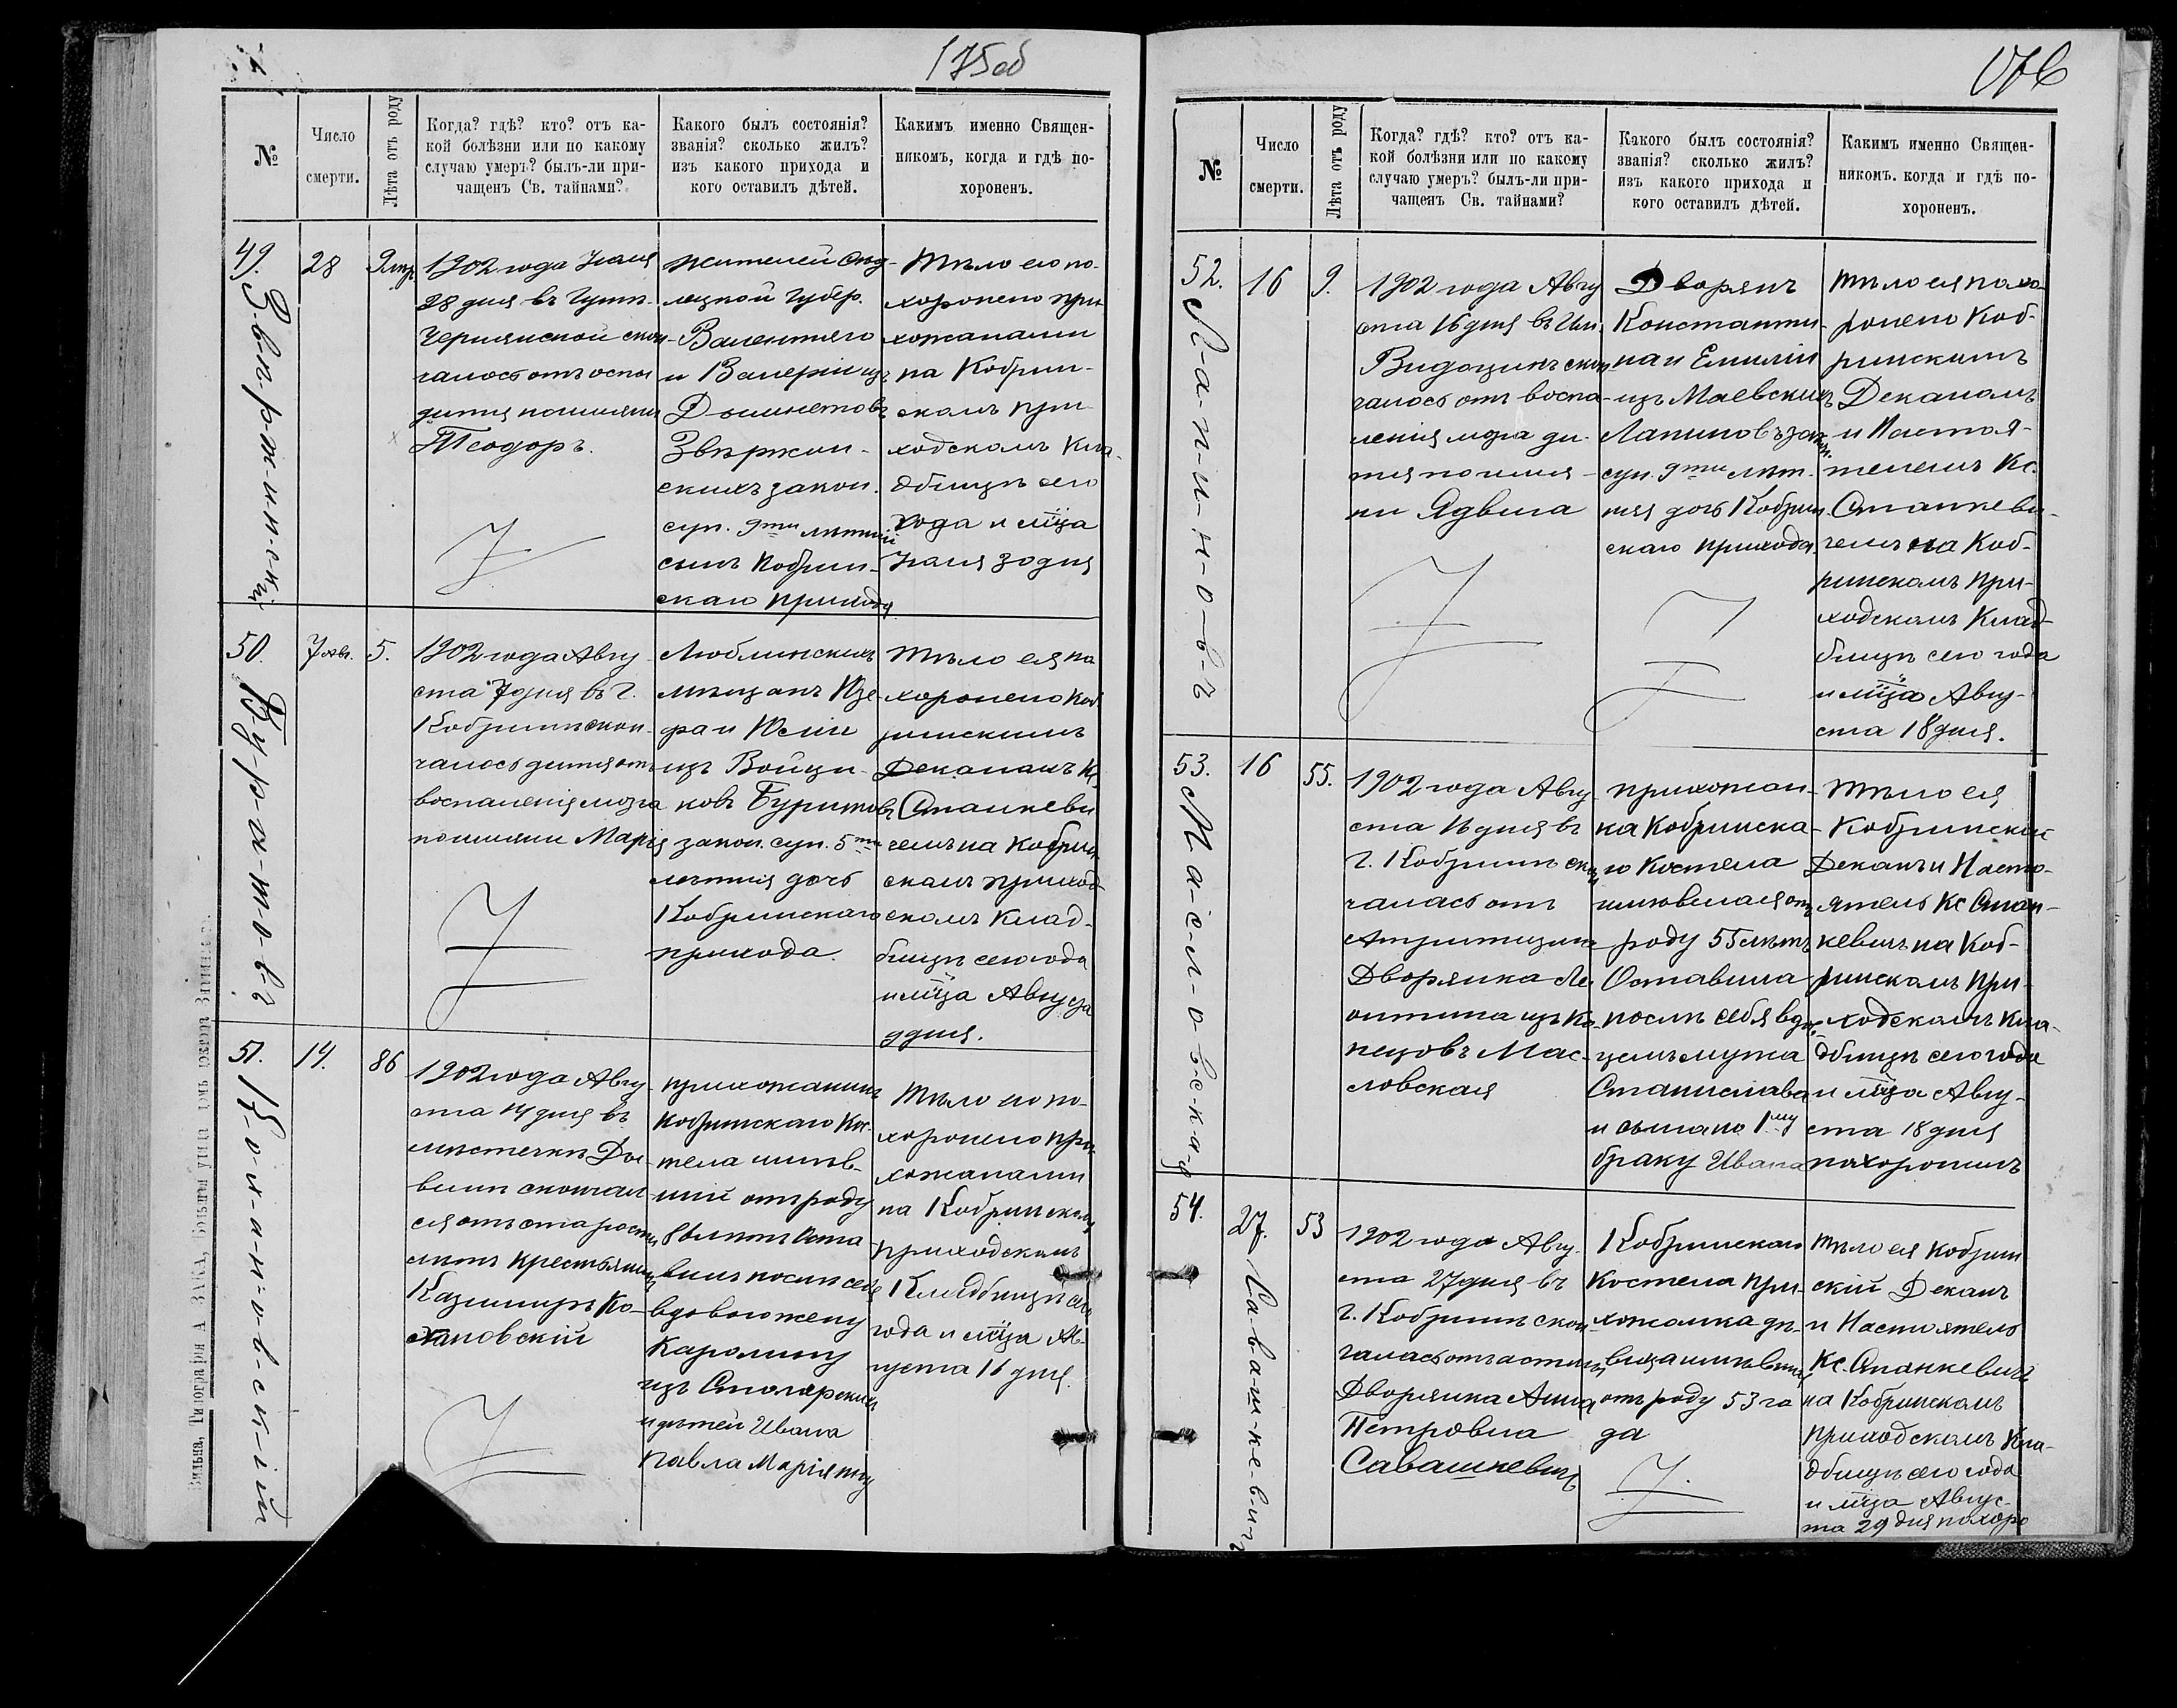 175об
№
Число
смерти.
Лѣта отъ роду
Когда? гдѣ? кто? отъ ка-
кой болѣзни или по какому
случаю умеръ? былъ-ли при-
чащенъ Св. тайнами?
Какого былъ состоянія?
званія? сколько жилъ?
изъ какого прихода и
кого оставилъ дѣтей.
Какимъ именно Священ-
никомъ, когда и гдѣ по-
хороненъ.
49.
З-вѣ-р-ж-и-н-с-кій
28
1902 года Іюля
28 дня въ
Чернянской скон-
чалось отъ оспы
дитя по имени
Теодоръ.
жителей Сѣд-
лецкой Губер.
Валентяго
и Валеріи изъ
Звѣржин-
скихъ закон.
суп. 9ти лѣтній
сынъ Кобрин-
скаго прихода
Тѣло его по-
хоронено при-
хожанами
на Кобрин-
скомъ при-
ходскомъ Кла-
дбищѣ сего
года и мца
Іюля 30 дня
50.
Б-у-р-а-т-о-в-ъ
7 авг.
5.
1902 года Авгу-
ста 7 дня въ г.
Кобринѣ скон-
чалось дитя отъ
воспаленія мозга
по имени Марія
Люблинскихъ
мѣщанъ Юзе-
фа и Юліи
изъ Войци-
ковъ
закон. суп. 5ти
лѣтняя дочь
Кобринскаго
прихода.
Тѣло ея по
хоронено Коб
ринскимъ
Деканомъ Кс.
Станкеви
чемъ на Кобрин
скомъ приход-
скомъ Клад-
бищѣ сего года
и мца Августа
9 дня.
51.
К-о-х-а-н-о-в-с-к-ій
14.
86
1902 года Авгу-
ста 14 дня въ
мѣстечкѣ Ди-
винѣ скончал-
ся отъ старости
лѣтъ крестьянинъ
Казимиръ Ко-
хановскій
прихожанинъ
Кобринскаго Кос-
тела жив-
шій отъ роду
86 лѣтъ Оста-
вилъ послѣ себя
вдовою жену
Каролину
изъ Столярскихъ
и дѣтей Ивана
Павла Маріянну
Тѣло его по-
хоронено при-
хожанами
на Кобринскомъ
приходскомъ
Кладбищѣ сего
года и мца Ав-
густа 16 дня.
Вильна, Типографія А. ЗАКА, Большая улица
176
№
Число
смерти.
Лѣта отъ роду
Когда? гдѣ? кто? отъ ка-
кой болѣзни или по какому
случаю умеръ? былъ-ли при-
чащенъ Св. тайнами?
Какого былъ состоянія?
званія? сколько жилъ?
изъ какого прихода и
кого оставилъ дѣтей.
Какимъ именно Священ-
никомъ. когда и гдѣ по-
хороненъ.
52.
Л-а-п-и-н-о-в-ъ
16
9.
1902 года Авгу
ста 16 дня въ Им.
скон-
чалось отъ воспа-
ленія мозга ди-
тя по име-
ни Ядвига
Дворянъ
Константи-
на и Емиліи
изъ Маевскихъ
Лапиновъ закон.
суп. 9ти лѣт-
няя дочь Кобрин-
скаго прихода
Тѣло ея похо-
ронено Коб-
ринскимъ
Деканомъ
и Настоя-
телемъ Кс.
Станкеви-
чемъ на Коб-
ринскомъ при-
ходскомъ Клад-
бищѣ сего года
и мца Авгу-
ста 18 дня.
53.
М-а-с-л-о-в-с-к-а-я
16
55.
1902 года Авгу-
ста 16 дня въ
г. Кобринѣ скон-
чалась отъ
Дворянка Ле-
онтина изъ Ко-
Мас-
ловская
прихожан-
ка Кобринска-
го Костела
жившая отъ
роду 55 лѣтъ
Оставила
послѣ себя вдов-
цемъ мужа
Станислава
и сына по 1му
браку Ивана
Тѣло ея
Кобринскій
Деканъ и Насто-
ятель Кс Стан-
кевичъ на Коб-
ринскомъ при-
ходскомъ Кла-
дбищѣ сего года
и мца Авгу-
ста 18 дня
похоронилъ
54.
Са-ва-ш-ке-вичъ
27.
53
1902 года Авгу-
ста 27 дня въ
г. Кобринѣ скон-
чалась отъ астмы
Дворянка Анна
Петровна
Савашкевичъ
Кобринскаго
Костела при-
хожанка дѣ-
вица жившая
отъ роду 53 го
да
Тѣло ея Кобрин
скій Деканъ
и Настоятель
Кс. Станкевичъ
на Кобринскомъ
приходскомъ Кла-
дбищѣ сего года
и мца Авгус-
та 29 дня похоро